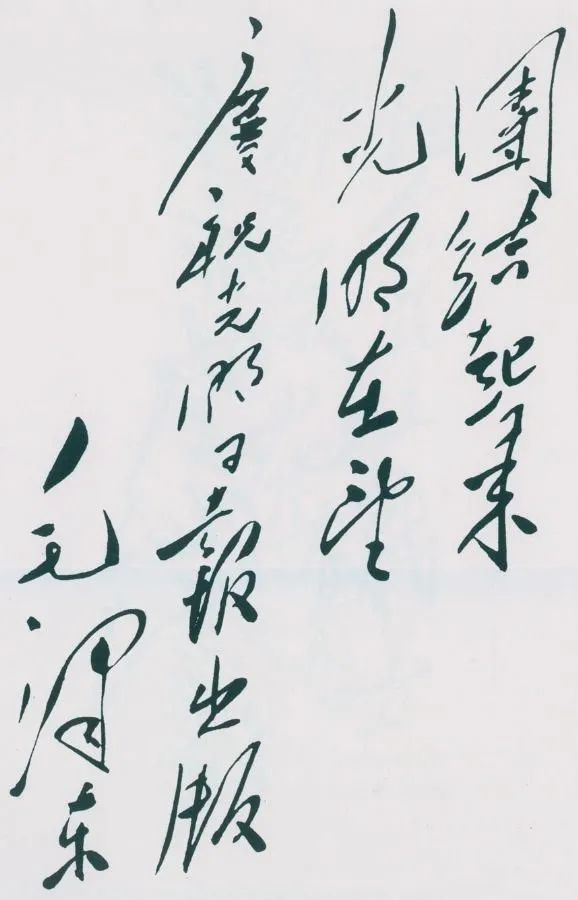 團结起来
光明在望
慶祝光明日報出版
毛泽东